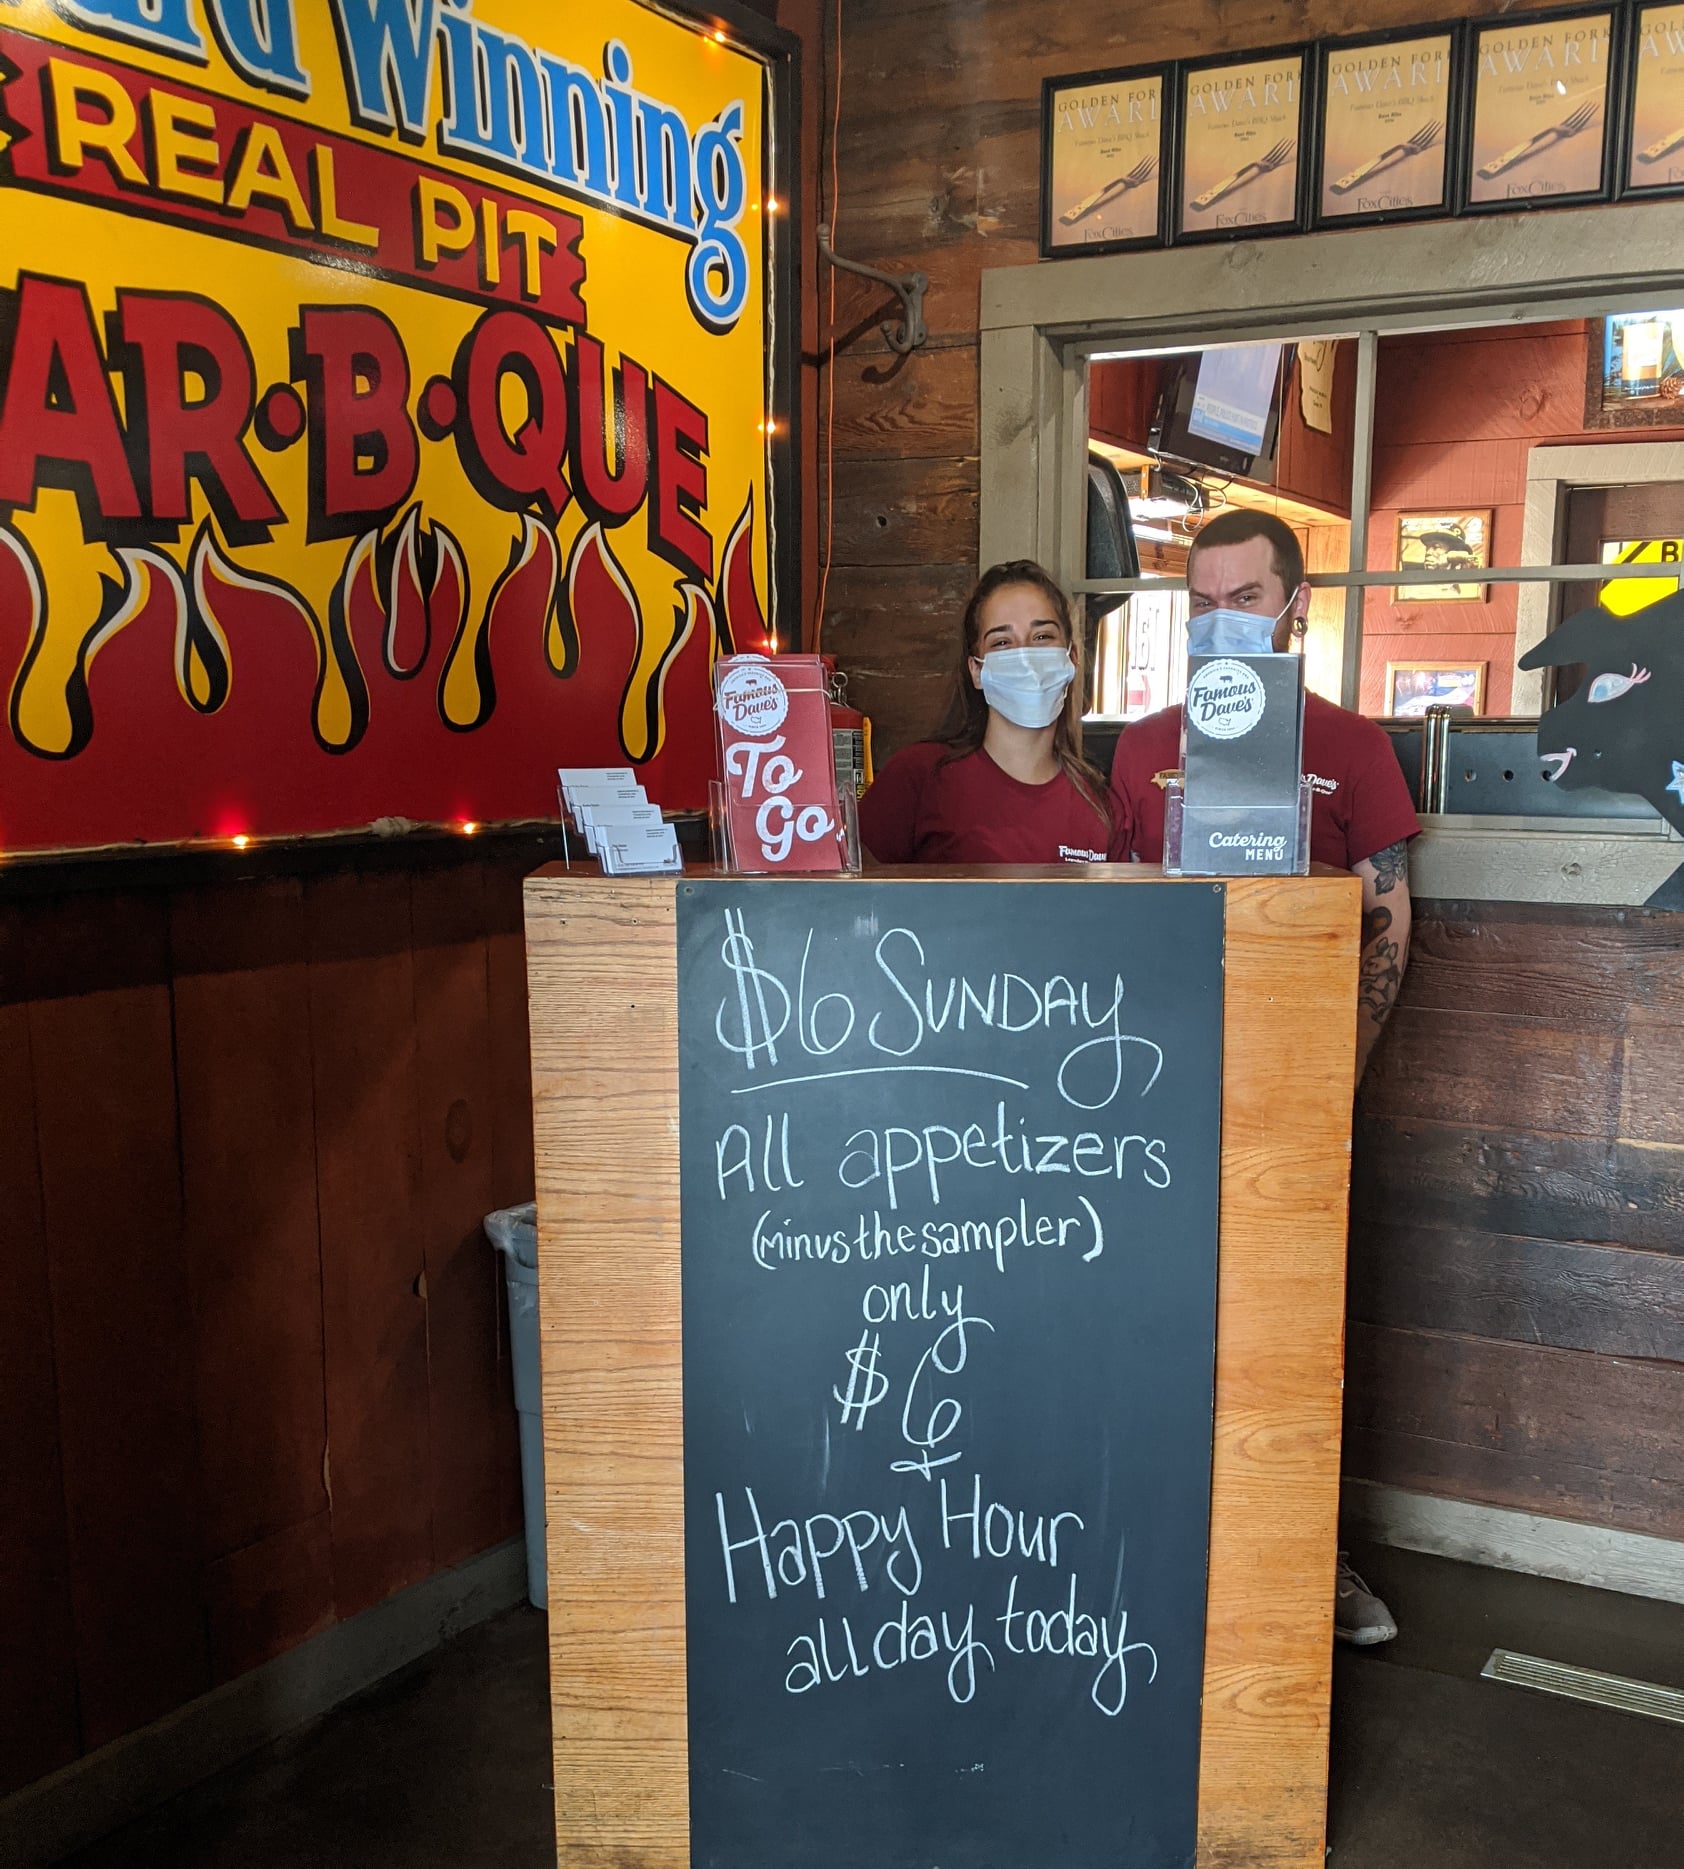 Winning
REAL PIT
AR·B·QUE
GOLDEN FOR
AWARD
Famous Dave's BBQ Shack
Best Ribs
FoxCities
GOLDEN FORK
AWARD
Famous Dave's BBQ Shack
Best Ribs
FoxCities
GOLDEN FORK
AWARD
Famous Dave's BBQ Shack
Best Ribs
FoxCities
GOLDEN FORK
AWARD
Famous Dave's BBQ Shack
Best Ribs
FoxCities
AW
B
Famous
Dave's
To
Go
Famous
Dave's
Catering
MENU
Famous Dave
Dave's
$6 SUNDAY
All appetizers
(minus the sampler)
only
$6
+
Happy Hour
all day today